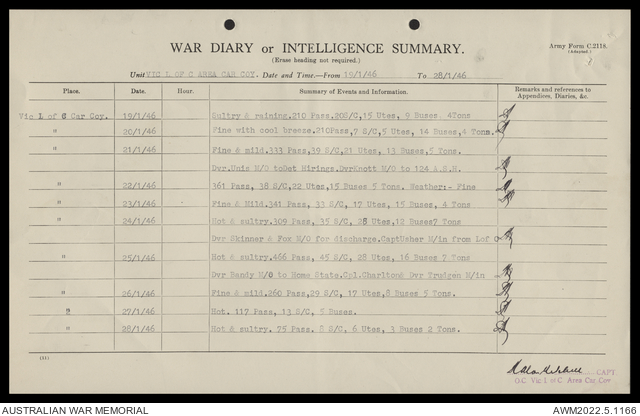 WAR DIARY or INTELLIGENCE SUMMARY.
(Erase heading not required.)
Army Form C.2118.
(Adapted.)
Unit VIC L OF C AREA CAR COY. Date and Time.—From 19/1/46 To 28/1/46
Place. Date. Hour. Summary of Events and Information. Remarks and references to Appendices, Diaries, &c.
Vic L of C Car Coy. 19/1/46 Sultry & raining.210 Pass.20S/C,15 Utes, 9 Buses. 4Tons
" 20/1/46 Fine with cool breeze.210Pass,7 S/C,5 Utes, 14 Buses,4 Tonn.
" 21/1/46 Fine & mild.333 Pass,39 S/C,21 Utes, 13 Buses,5 Tons.
Dvr.Unie M/O toDet Mirings.DvrKnott M/O to 124 A.G.H.
" 22/1/46 361 Pass, 38 S/C,22 Utes,15 Buses 5 Tons. Weather:- Fine
" 23/1/46 Fine & Mild.341 Pass, 33 S/C, 17 Utes, 15 Buses, 4 Tons
" 24/1/46 Hot & sultry.309 Pass, 35 S/C, 28 Utes,12 Buses7 Tons
Dvr Skinner & Fox M/O for discharge.CaptUsher M/in from Lof C
" 25/1/46 Hot & sultry.466 Pass, 45 S/C, 28 Utes, 16 Buses 7 Tons
Dvr Bandy M/O to Home State.Cpl.Charlton& Dvr Trudgen M/in
" 26/1/46 Fine & mild.260 Pass,29 S/C, 17 Utes,8 Buses 5 Tons.
" 27/1/46 Hot. 117 Pass, 13 S/C, 5 Buses.
" 28/1/46 Hot & sultry. 75 Pass. 8 S/C, 6 Utes, 3 Buses 2 Tons.
CAPT
O.C. Vic L of C Area Car Coy
AUSTRALIAN WAR MEMORIAL
AWM2022.5.1166